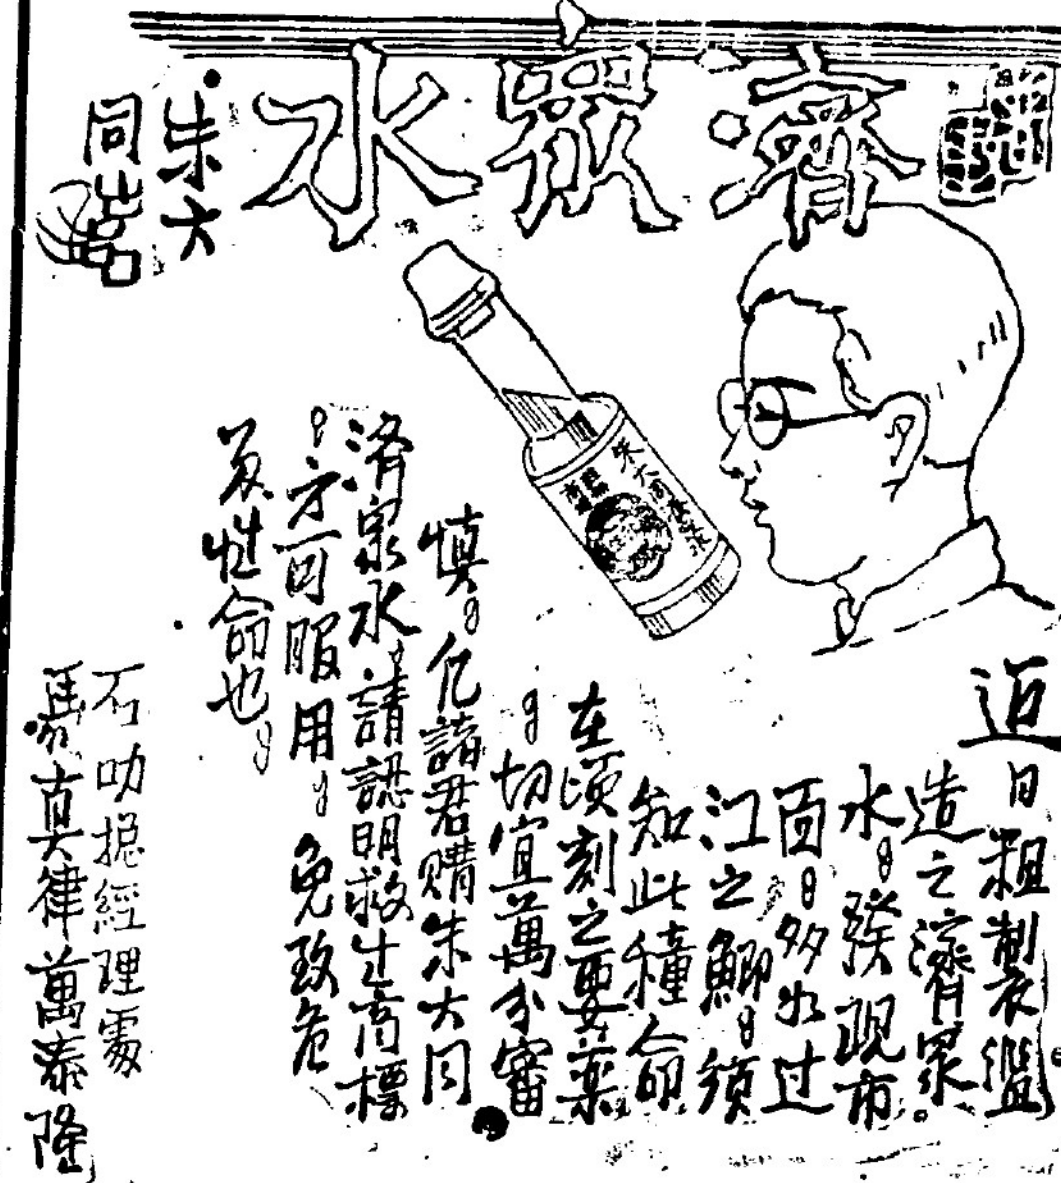 濟眾水
朱大
同造
近日粗製濫
造之濟眾
水。發現市
面。多如过
江之鯽。須
知此種命
在頃刻之要薬
。切宜萬分審
慎。凡諸君購朱大同
濟眾水。請認明救生商標
。方可服用。免致危
及性命也。
石叻總經理處
馬真律萬泰隆